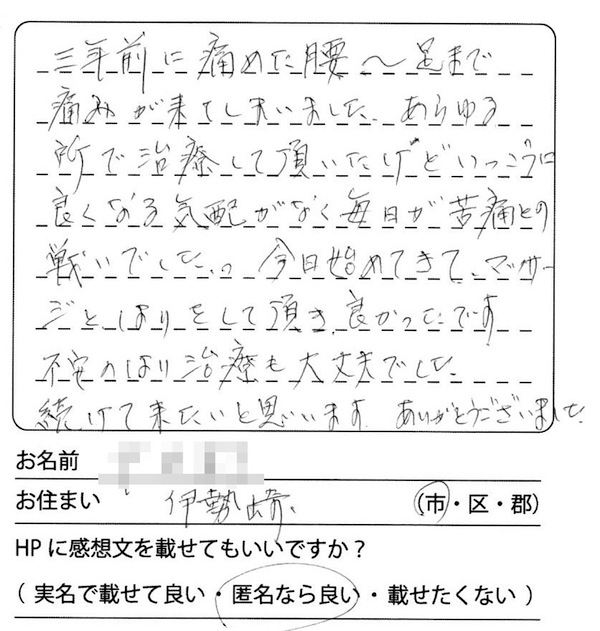 三年前に痛めた腰〜足まで
痛みが来てしまいました。あらゆる
所で治療して頂いたけどいっこうに
良くなる気配がなく毎日が苦痛との
戦いでした。。今日始めてきて、マッサー
ジとはりをして頂き良かったです
不安のはり治療も大丈夫でした
続けて来たいと思いいます。ありがとうございました
お名前
お住まい 伊勢崎 (市・区・郡)
HPに感想文を載せてもいいですか？
( 実名で載せて良い・匿名なら良い・載せたくない )